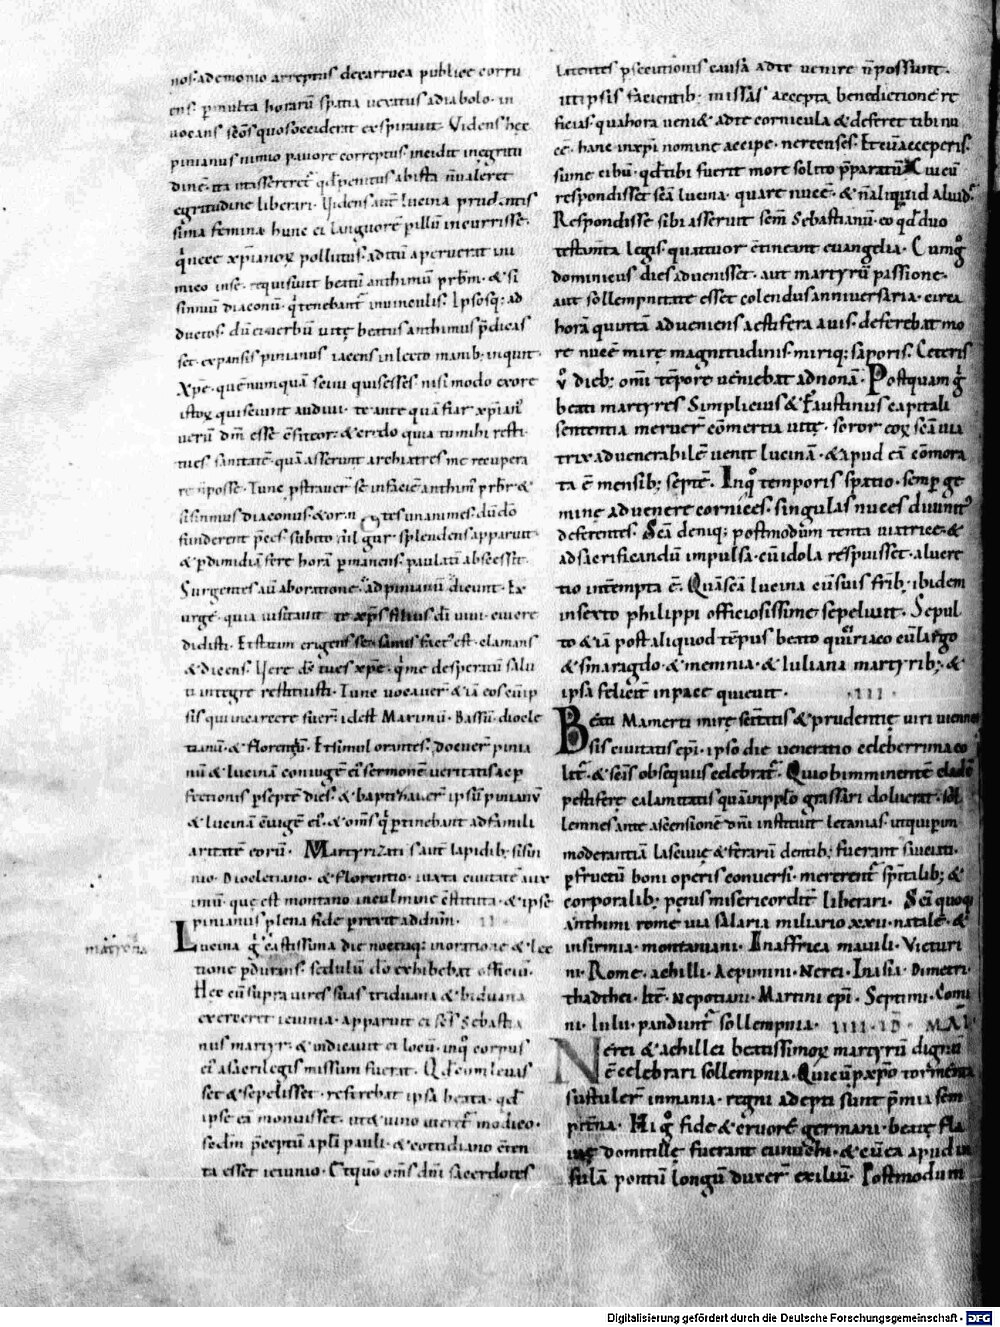 nos. ademonio arreptus decarruca publice corru
ens. p multa horarū spatia uexatus adiabolo. in
uocans scōs quos occiderat expirauit. Videns hec
pinianus nimio pauore correptus. incidit inegritu
dinē. ita utassereret qd penitus abista n̄ualeret
egritudine liberari. Videns aut lucina prudentis
sima femina hunc ei languorē
q̄nece xp̄ianoꝝ pollutus. aditū aperuerat ini
mico inse. requisiuit beatū anthimū prbm̄. & si
sinniū diaconū. q̄ tenebant inuinculis. Ipsosq; ad
ductos. dū de uerbū uitę beatus anthimus p̄dicas
set. expansis pinianus iacens inlecto manib; inquit.
Xp̄e. quē numquā sciui qui esses. nisi modo exore
istoꝝ qui sciunt audiui. te ante quā fiar xp̄ian'
uerū dm̄ esse c̄fiteor. & credo quia tu mihi resti
tues sanitatē. quā asserunt archiatres me recupera
re n̄posse. Tunc pstrauer se infaciē anthim' prbr &
sisinnius diaconus. & orantes unanimes. dū do
funderent p̄ces. subito uigil splendens apparuit
& p dimidiā fere horā pmanens. paulatī abscessit.
Surgentes aū aboratione. adpinianū dicunt. Ex
urge. quia uisitauit te xp̄s filius di uiui. cuiere
didisti. Et statim erigens se. sanus fact est. clamans
& dicens. Vere ds̄ tu es xp̄e. q̄ me desperatū salu
ti integre restituisti. Tunc uocauer & iā eos
sis qui incarcere fuer. id est Maximū. Bassū. diocle
tianū. & florentiū. Et simul orantes. docuer pinia
nū & lucinā coniugē ei' sermonē ueritatis acp
fectionis p septē dies. & baptizauer ipsū pinianū
& lucinā c̄iugē ei'. & om̄s q̄ ptinebant ad famili
aritatē eorū. Martyrizati s̄ aut lapidib; sisin
nio. Diocletiano. & florentio. iuxta ciuitatē aux
imū. que est montano inculmine c̄stituta. & ipse
pinianus plena fide prexit ad dnm̄. II
Lucina g' castissima die noctuq; inoratione & lec
matrona
tione pdurans. sedulū dō exhibebat officiū.
Hec cū supra uires suas triduana & biduana
exerceret ieiunia. apparuit ei scs̄ Sebastia
nus martyr. & indicauit ei locū. inq̄ corpus
ei' asacrilegis missum fuerat. Qd cum leuas
set & sepelisset. referebat ipsa beata. qd
ipse eā monuisset. ut & uino uteret modico.
sedm̄ p̄ceptū apli pauli. & cottidiano c̄ten
ta esset ieiunio. Et quō om̄s dn̄i sacerdotes
latentes psecutionis causā adte uenire n̄ possunt.
ut ipsis facientib; missas accepta benedictione re
ficias. qua hora ueni& adte cornicula & deferet tibi nu
cē. hanc inxpi nomine accipe. n & censes. Et cū acceperis.
sume cibū. qd tibi fuerit more solito p̄paratū. Cui cū
respondisset scā lucina. quare nucē. & n̄ aliquid aliud.
Respondisse sibi asseruit scm̄ Sebastianū. eo qd duo
testamta legis. quattuor c̄tineant euangelia. Cum g'
dominicus dies aduenisset. aut martyrū passione.
aut sollempnitate esset colendus anniuersaria. circa
horā quintā adueniens aestifera auis. deferebat mo
re nucē mirę magnitudinis. miriq; saporis. Ceteris
u° dieb; omi tēpore ueniebat adnonā. Postquam g'
beati martyres Simplicius & Faustinus capitali
sententia meruer cōmertia uitę. soror eoꝝ scā uia
trix aduenerabilē uenit lucinā. & apud eā cōmora
ta ē mensib; septē. Inq̄ temporis spatio. semp ge
minę aduenere cornices. singulas nuces diuinit'
deferentes. Scā deniq; postmodum tenta uiatrice. &
ad sacrificandū impulsa. cū idola respuisset. aluere
tio intēpta ē. Quā scā lucina cū suis frīb; ibidem
insexto philippi officiosissime sepeliuit. Sepul
to & iā post aliquod tēpus beato quiriaco cū largo
& smaragdo. & memmia. & Iuliana martyrib; &
ipsa felicit inpace quieuit. ·III·
Beati Mamerti mirę scītatis & prudentię uiri uiennen
sis ciuitatis epi. ipso die ueneratio celeberrima co
lit. & scīs obsequiis celebrat. Qui ob imminentē cladē
pestiferę calamitatis quā inpplo grassari doluerat. sol
lemnes ante ascensionē dni instituit letanias. ut qui prim
moderantiā lasciuię & ferarū dentib; fuerant sauciati.
p fructū boni operis conuersi. mererent spitalib; &
corporalib; penis misericordit liberari. Sci quoq;
Anthimi rome uia salaria miliario xxii. natale. &
insirmia. montaniani. Inaffrica maiuli. Victuri
ni. Rome. achilli. Aepimini. Nerei. Inasia Dimetri.
thadthei. Itē. Nepotiani. Martini epi. Septimi. Comi
ni. Iulu. pandunt sollempnia. IIII· ID MAI
Nerei & achillei beatissimoꝝ martyrū dignū
ē celebrari sollempnia. Qui cū p xpo tormenta
sustuler inmania. regni adepti sunt p̄mia sem
piterna. Hi g' fide & cruore germani. beatę fla
uię domitillę fuerant eunuchi. & cū ea apud in
sulā pontiū longū duxer exiliū. Postmodum
Digitalisierung gefördert durch die Deutsche Forschungsgemeinschaft - DFG